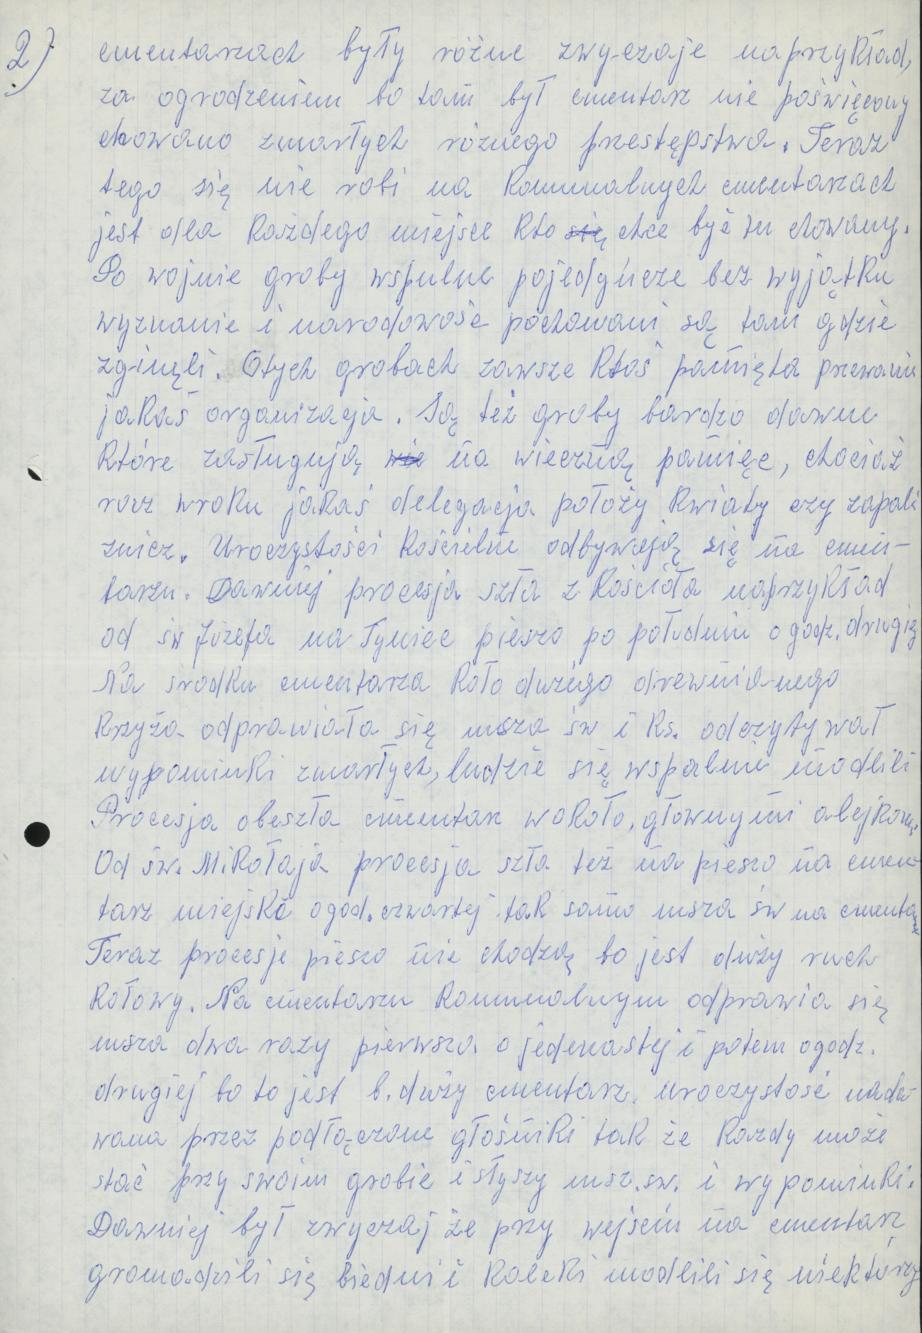 2)
cmentarzach były różne zwyczaje naprzykład,
za ogrodzeniem bo tam był cmentarz nie poświęcony
chowano zmarłych różnego przestępstwa. Teraz
tego się nie robi na komunalnych cmentarzach
jest dla każdego miejsce kto się chce być tu chowany.
Po wojnie groby wspulne pojedyńcze bez wyjątku
wyznanie i narodowość pochowani są tam gdzie
zginęli. Otych grobach zawsze ktoś pamięta przeważnie
jakaś organizacja. Są też groby bardzo dawne
które zasługują nie na wieczną pamięć, chociaż
raz wroku jakaś delegacja położy kwiaty czy zapali
znicz. Uroczystości kościelne odbywają się na cmen-
tarzu. Dawniej procesja szła z kościoła naprzykład
od św Józefa na Tyniec pieszo po południu o godz. drugiej
Na srodku cmentarza koło dużego drewnianego
krzyża odprawiała się msza św i ks. odczytywał
wypominki zmarłych, ludzie się wspalnie modlili
Procesja obeszła cmentarz wokoło, głownymi alejkami
Od św. Mikołaja procesja szła też na pieszo na cmen-
tarz miejski ogod. czwartej tak samo msza św na cmenta
Teraz procesje pieszo nie chodzą bo jest duży ruch
kołowy. Na cmentarzu komunalnym odprawia się
msza dwa razy pierwsza o jedenastej i potem ogodz.
drugiej bo to jest b. duży cmentarz. uroczystość nada-
wana przez podłączone głośniki tak że każdy może
stać przy swoim grobie i słyszy msz. św. i wypominki.
Dawniej był zwyczaj że przy wejściu na cmentarz
gromadzili się biedni i kaleki modlili się niektórzy